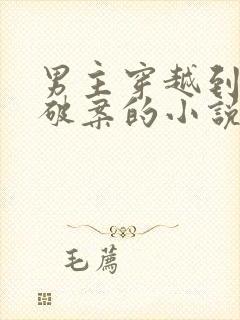 男主穿越到
破案的小说
毛荐